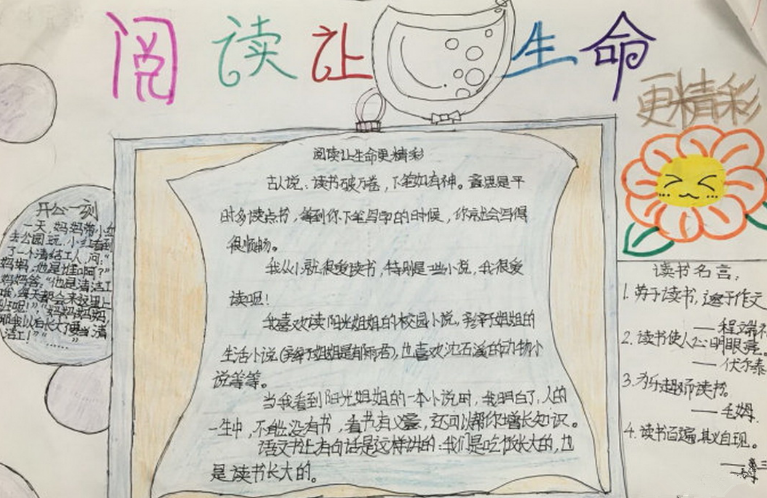 阅读让生命
更精彩
阅读让生命更精彩
古人说、读书破万卷，下笔如有神。意思是平
时多读点书，等到你下笔写印的时候，你就会写得
很顺畅。
我从小就很爱读书，特别是一些小说，我很爱
读呢！
我喜欢读阳光姐姐的校园小说。姐姐的
生活小说，也喜欢沈石溪的动物小
说等等。
当我看到阳光姐姐的一本小说时，我明白了，人的
一生中，不能没有书，看书有义，还可以帮你增长知识。
语文书上有句话是这样讲的：我们是吃饭长大的，也
是读书长大的。
开心一刻
一天，妈妈带小
去公园玩，小红看到
了一个清洁工人，问：“
妈妈，他是谁啊？”
读书名言，
1.劳于读书，逸于作文
——程端礼
2.读书使人心明眼亮。
——伏尔泰
3.为乐趣而读书。
——毛姆
4.读书百遍，其义自现。